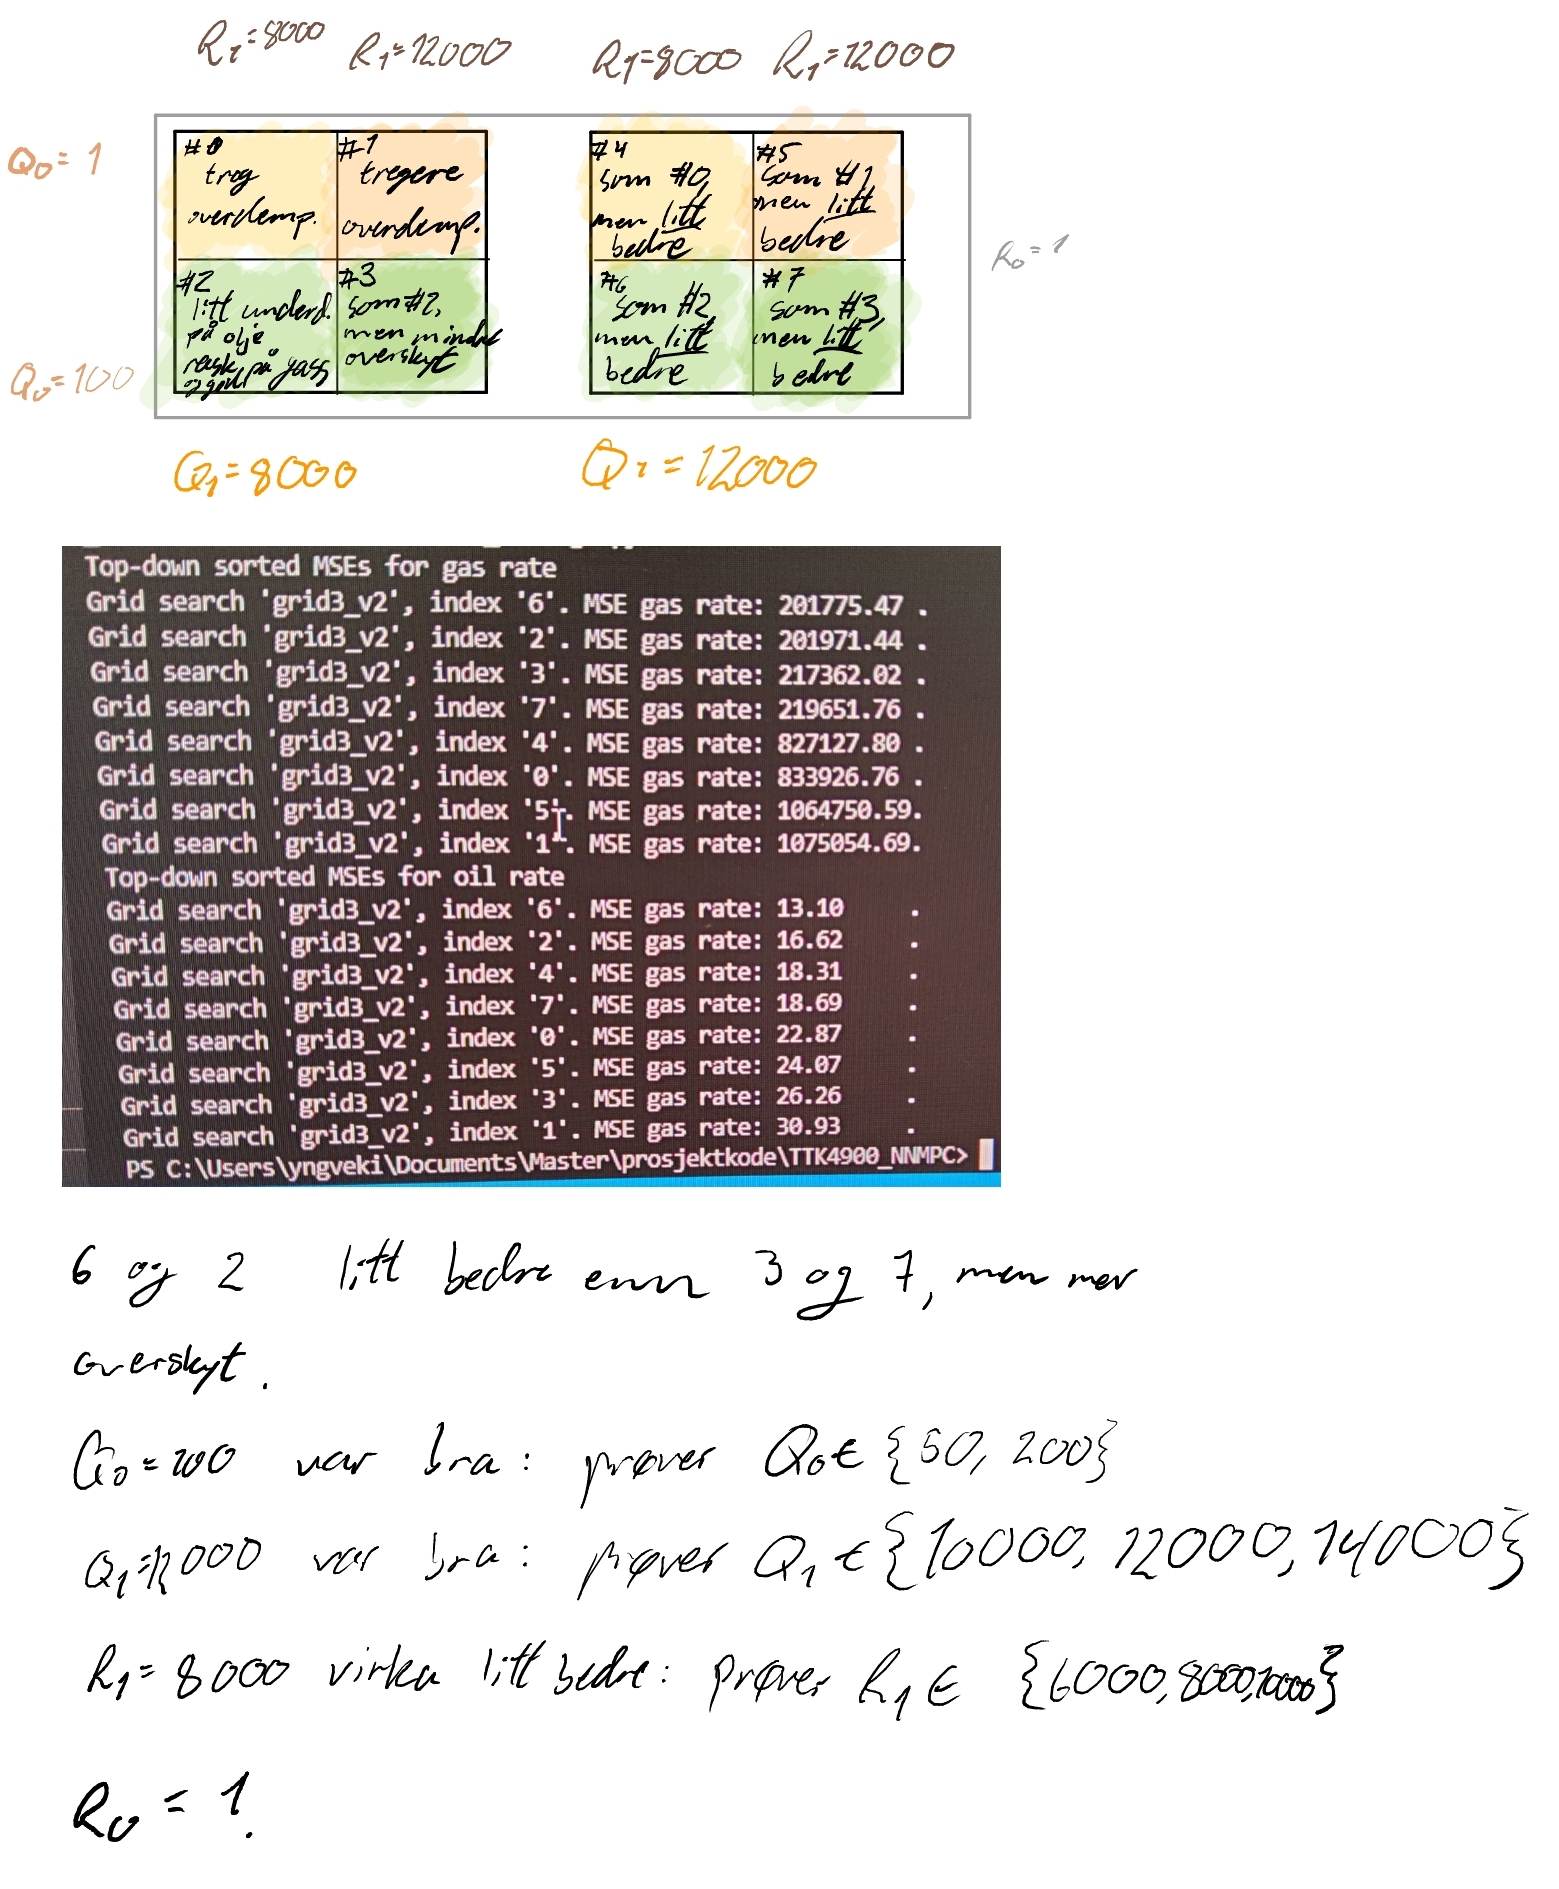 R₁=8000 R₁=12000 R₁=8000 R₁=12000
Q₀=1
#0
treg
overdemp.
#1
tregere
overdemp.
#4
som #0,
men litt
bedre
#5
som #1
men litt
bedre
R₀=1
Q₀=100
#2
litt underd.
på olje
rask på gass
og god
#3
som #2,
men mindre
overskyt
#6
som #2,
men litt
bedre
#7
som #3,
men litt
bedre
Q₁=8000 Q₁=12000
Top-down sorted MSEs for gas rate
Grid search 'grid3_v2', index '6'. MSE gas rate: 201775.47 .
Grid search 'grid3_v2', index '2'. MSE gas rate: 201971.44 .
Grid search 'grid3_v2', index '3'. MSE gas rate: 217362.02 .
Grid search 'grid3_v2', index '7'. MSE gas rate: 219651.76 .
Grid search 'grid3_v2', index '4'. MSE gas rate: 827127.80 .
Grid search 'grid3_v2', index '0'. MSE gas rate: 833926.76 .
Grid search 'grid3_v2', index '5'. MSE gas rate: 1064750.59.
Grid search 'grid3_v2', index '1'. MSE gas rate: 1075054.69.
Top-down sorted MSEs for oil rate
Grid search 'grid3_v2', index '6'. MSE gas rate: 13.10 .
Grid search 'grid3_v2', index '2'. MSE gas rate: 16.62 .
Grid search 'grid3_v2', index '4'. MSE gas rate: 18.31 .
Grid search 'grid3_v2', index '7'. MSE gas rate: 18.69 .
Grid search 'grid3_v2', index '0'. MSE gas rate: 22.87 .
Grid search 'grid3_v2', index '5'. MSE gas rate: 24.07 .
Grid search 'grid3_v2', index '3'. MSE gas rate: 26.26 .
Grid search 'grid3_v2', index '1'. MSE gas rate: 30.93 .
PS C:\Users\yngveki\Documents\Master\prosjektkode\TTK4900_NNMPC>
6 og 2 litt bedre enn 3 og 7, men mer
overskyt.
Q₀=100 var bra: prøver Q₀∈{50, 200}
Q₁=12000 var bra: prøver Q₁∈{10000, 12000, 14000}
R₁=8000 virka litt bedre: prøver R₁∈ {6000,8000,10000}
R₀=1.